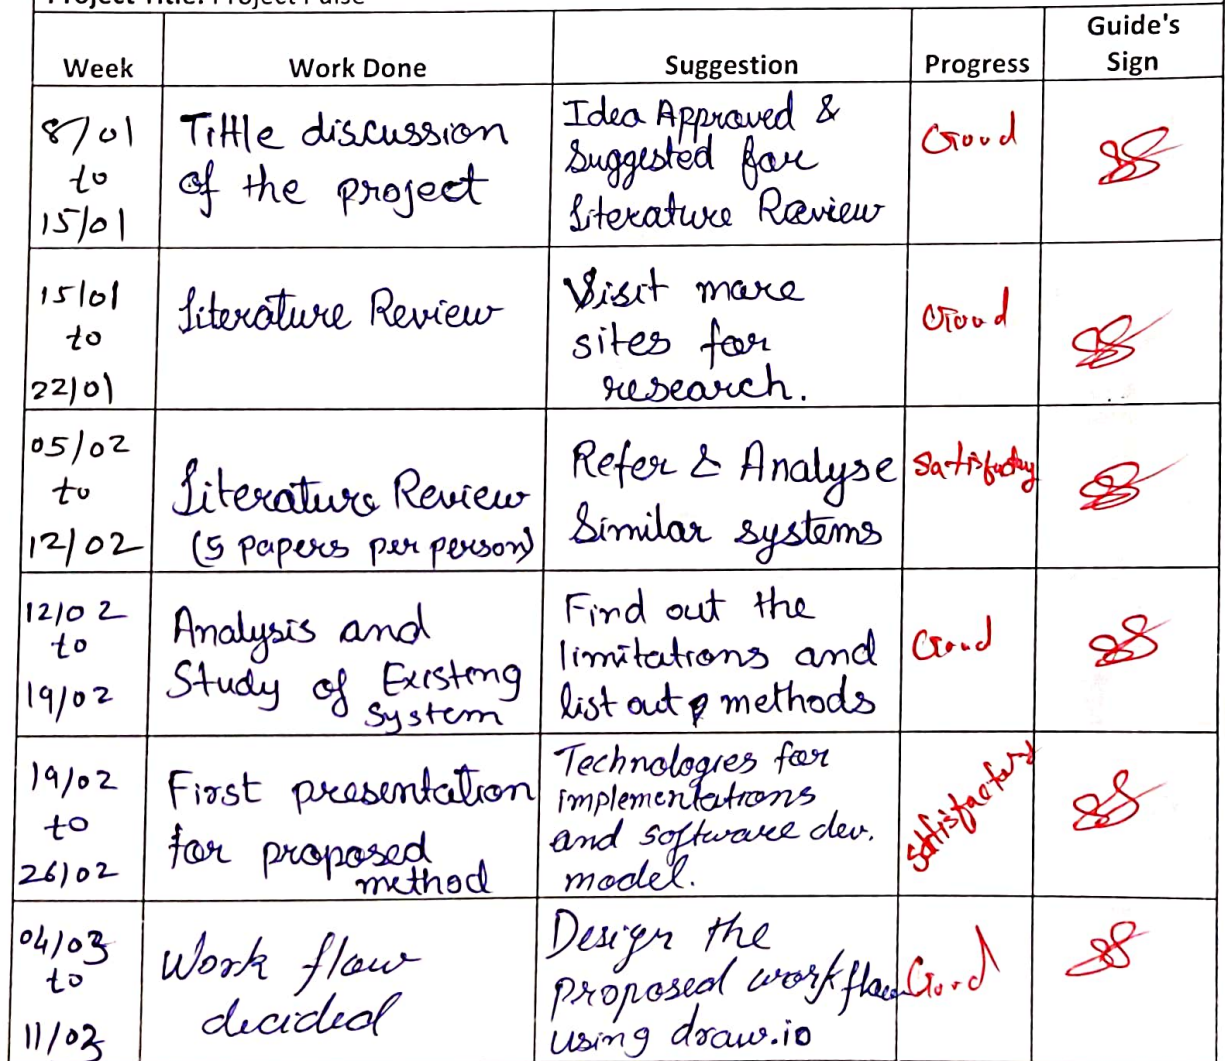 Project Title: Project Pulse
Week Work Done Suggestion Progress Guide's Sign
8/01 to 15/01
Tittle discussion
of the project
Idea Approved &
Suggested for
Literature Review
Good
15/01 to 22/01
Literature Review
Visit more
sites for
research.
Good
05/02 to 12/02
Literature Review
(5 papers per person)
Refer & Analyse
Similar systems
Satisfactory
12/02 to 19/02
Analysis and
Study of Existing
System
Find out the
limitations and
list out methods
Good
19/02 to 26/02
First presentation
for proposed
method
Technologies for
implementations
and software dev.
model.
Satisfactory
04/03 to 11/03
Work flow
decided
Design the
proposed workflow
using draw.io
Good